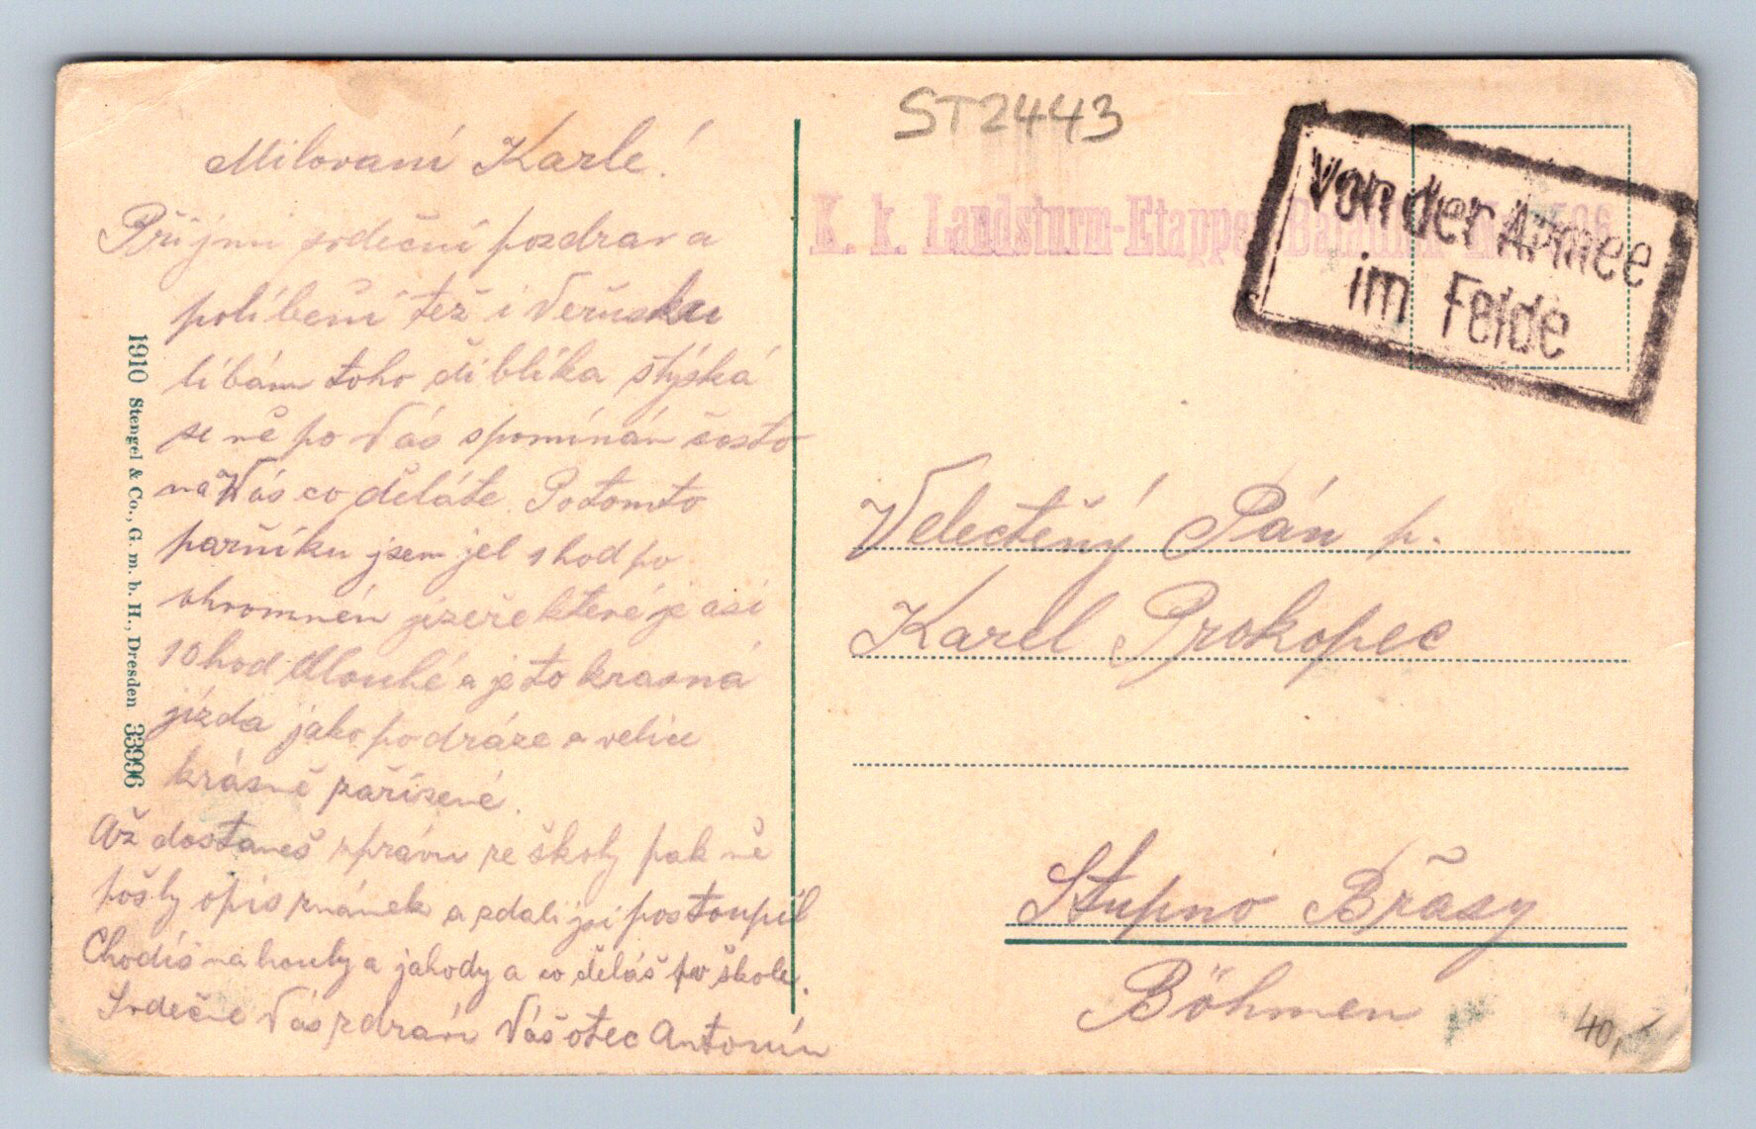 Milovaní Karle!
Přijmi srdeční pozdrav a
políbení též i Veřusku
líbám toho diblíka stýská
se ně po Vás spomínán často
na Vás co děláte. Potomto
parníku jsem jel 1 hod po
ohromnén jizeře které je asi
10 hod dlouhé a je to krasná
jízda jako po dráze a velice
krásně zařízené.
Až dostaneš zprávu ze školy pak ně
pošly opis známek a zdali jsi postoupil
Chodíš na houby a jahody a co děláš po škole.
Srdečně Vás zdraví Váš otec Antonín
1910 Stengel & Co., G. m. b. H., Dresden 33996
ST2443
K. k. Landsturm-Etappen-Bataillon
Von der Armee
im Felde
Velectěný Pán p.
Karel Prokopec
Stupno Břasy
Böhmen
40,-